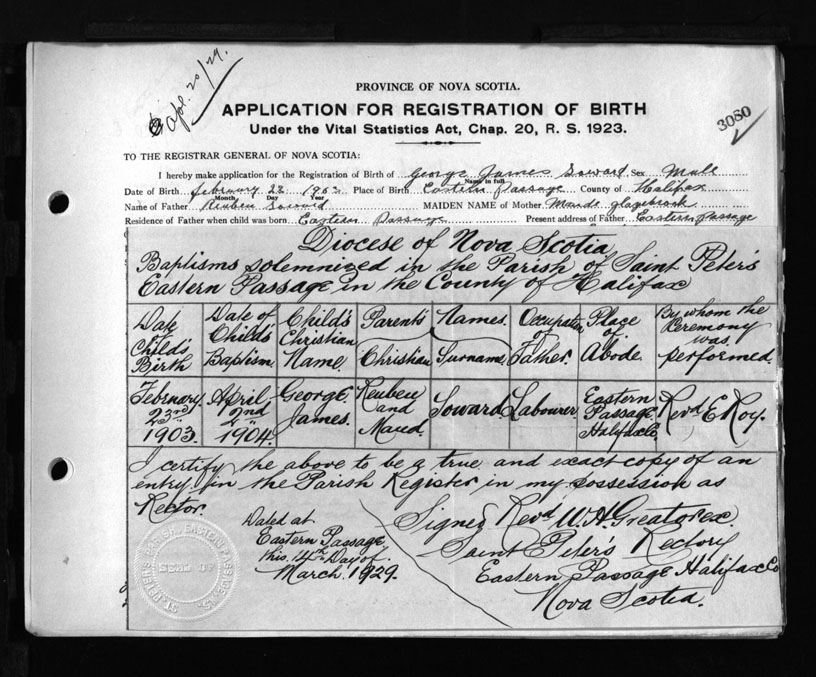 Apl. 20/29.
PROVINCE OF NOVA SCOTIA.
APPLICATION FOR REGISTRATION OF BIRTH
Under the Vital Statistics Act, Chap. 20, R. S. 1923.
3080
TO THE REGISTRAR GENERAL OF NOVA SCOTIA:
I hereby make application for the Registration of Birth of George James Soward Sex Male
Name in full
Date of Birth February 23 1903 Place of Birth Eastern Passage County of Halifax
Month Day Year
Name of Father Reuben Soward MAIDEN NAME of Mother Maude Glazebrook
Residence of Father when child was born Eastern Passage Present address of Father Eastern Passage
Diocese of Nova Scotia
Baptisms solemnized in the Parish of Saint Peter's
Eastern Passage in the County of Halifax
Date of Child's Birth
Date of Child's Baptism
Child's Christian Name
Parents Names.
Christian
Surname
Occupation of Father.
Place of Abode.
By whom the Ceremony was performed.
February 23rd 1903.
April 2nd 1904.
George James.
Reuben and Maud.
Soward.
Labourer
Eastern Passage Halifax Co
Revd E Roy.
I certify the above to be a true and exact copy of an
entry in the Parish Register in my possession as
Rector.
Dated at
Eastern Passage
this 4th Day of
March. 1929.
Signed Revd W. H. Greatorex.
Saint Peter's Rectory
Eastern Passage Halifax Co
Nova Scotia.
ST. PETER'S PARISH, EASTERN PASSAGE, N.S.
SEAL OF